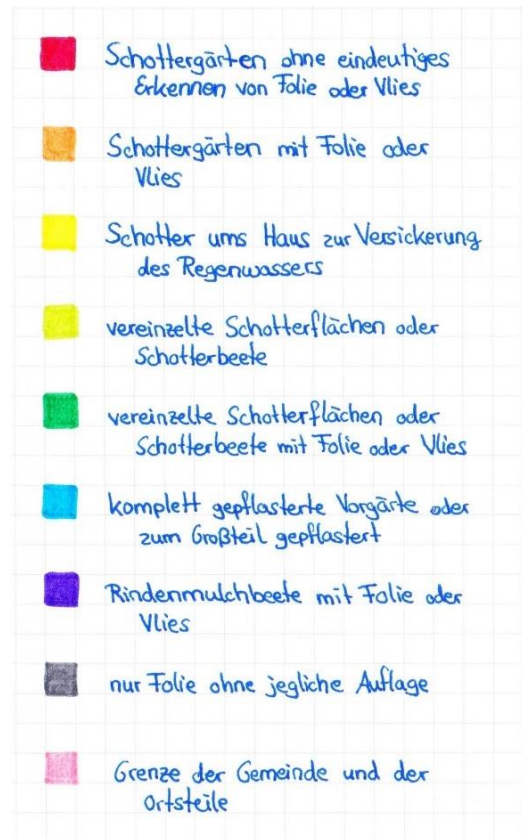 Schottergärten ohne eindeutiges
Erkennen von Folie oder Vlies
Schottergärten mit Folie oder
Vlies
Schotter ums Haus zur Versickerung
des Regenwassers
vereinzelte Schotterflächen oder
Schotterbeete
vereinzelte Schotterflächen oder
Schotterbeete mit Folie oder Vlies
komplett gepflasterte Vorgärte oder
zum Großteil gepflastert
Rindenmulchbeete mit Folie oder
Vlies
nur Folie ohne jegliche Auflage
Grenze der Gemeinde und der
Ortsteile